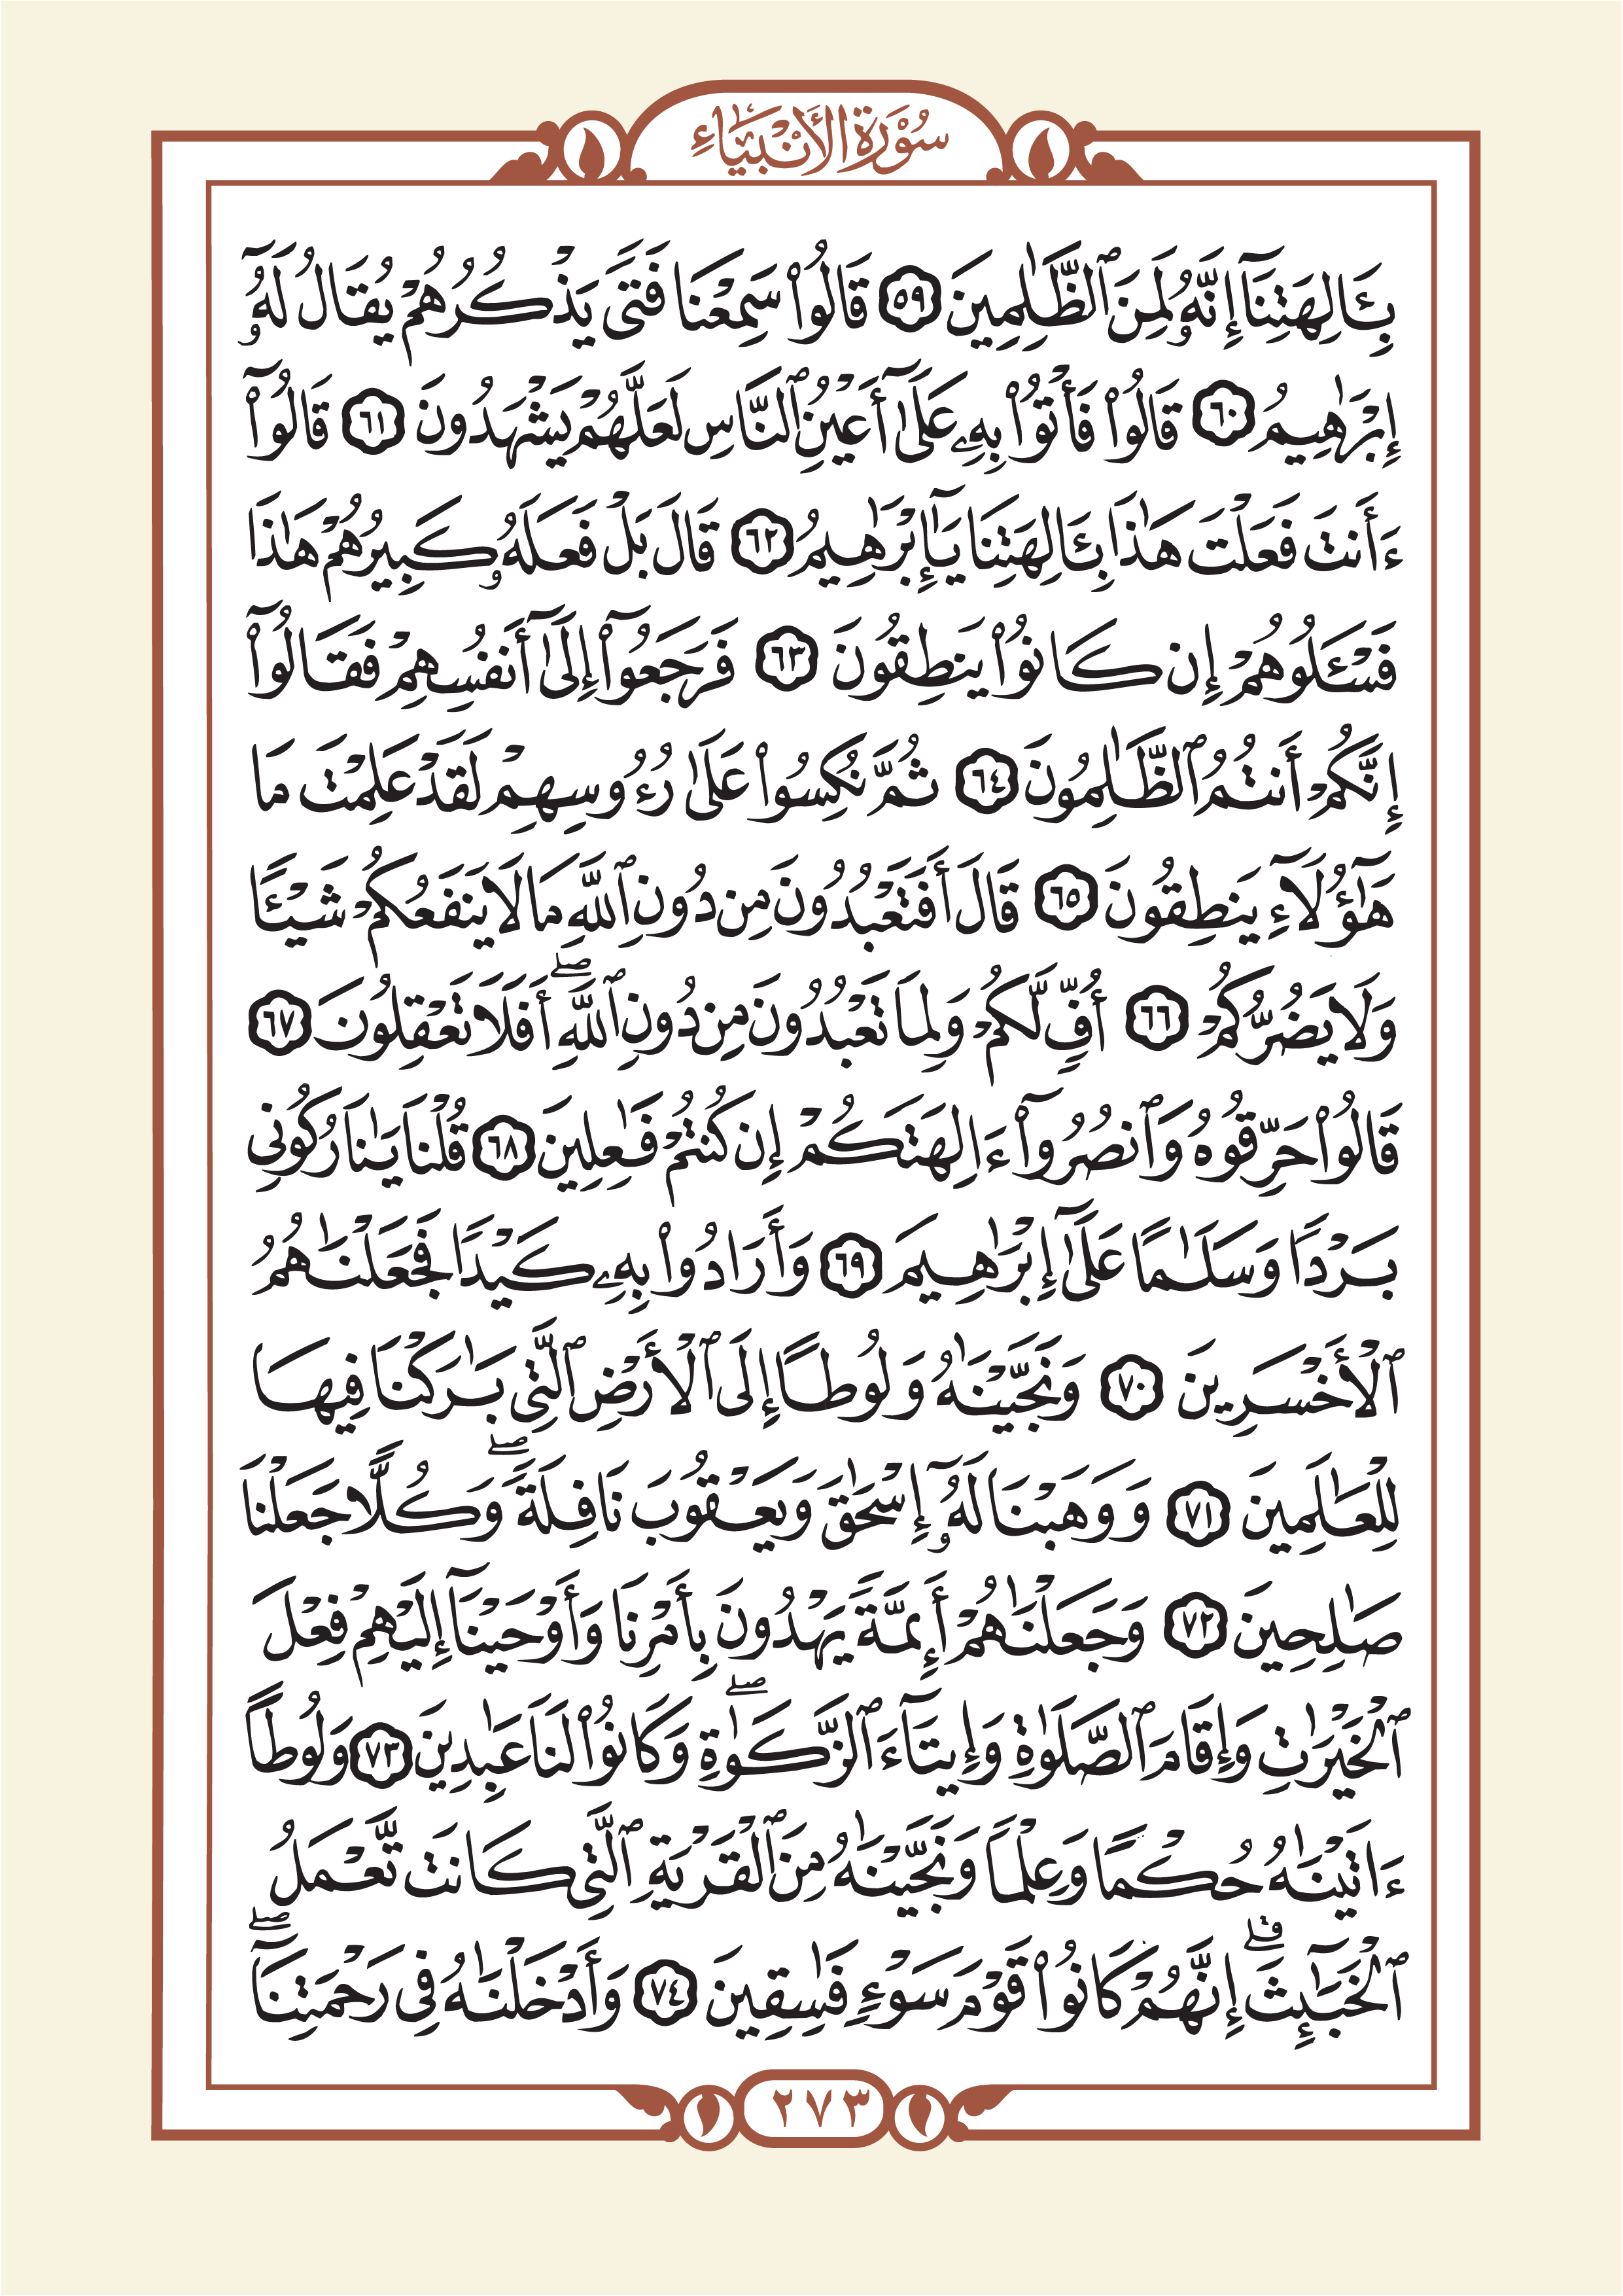 سُوْرَةُ الأَنْبِيَاءِ
بِـَٔالِهَتِنَآ إِنَّهُۥ لَمِنَ ٱلظَّٰلِمِينَ ٥٩ قَالُوا۟ سَمِعْنَا فَتًى يَذْكُرُهُمْ يُقَالُ لَهُۥٓ
إِبْرَٰهِيمُ ٦٠ قَالُوا۟ فَأْتُوا۟ بِهِۦ عَلَىٰٓ أَعْيُنِ ٱلنَّاسِ لَعَلَّهُمْ يَشْهَدُونَ ٦١ قَالُوٓا۟
ءَأَنتَ فَعَلْتَ هَٰذَا بِـَٔالِهَتِنَا يَٰٓإِبْرَٰهِيمُ ٦٢ قَالَ بَلْ فَعَلَهُۥ كَبِيرُهُمْ هَٰذَا
فَسْـَٔلُوهُمْ إِن كَانُوا۟ يَنطِقُونَ ٦٣ فَرَجَعُوٓا۟ إِلَىٰٓ أَنفُسِهِمْ فَقَالُوٓا۟
إِنَّكُمْ أَنتُمُ ٱلظَّٰلِمُونَ ٦٤ ثُمَّ نُكِسُوا۟ عَلَىٰ رُءُوسِهِمْ لَقَدْ عَلِمْتَ مَا
هَٰٓؤُلَآءِ يَنطِقُونَ ٦٥ قَالَ أَفَتَعْبُدُونَ مِن دُونِ ٱللَّهِ مَا لَا يَنفَعُكُمْ شَيْـًٔا
وَلَا يَضُرُّكُمْ ٦٦ أُفٍّ لَّكُمْ وَلِمَا تَعْبُدُونَ مِن دُونِ ٱللَّهِ ۖ أَفَلَا تَعْقِلُونَ ٦٧
قَالُوا۟ حَرِّقُوهُ وَٱنصُرُوٓا۟ ءَالِهَتَكُمْ إِن كُنتُمْ فَٰعِلِينَ ٦٨ قُلْنَا يَٰنَارُ كُونِى
بَرْدًا وَسَلَٰمًا عَلَىٰٓ إِبْرَٰهِيمَ ٦٩ وَأَرَادُوا۟ بِهِۦ كَيْدًا فَجَعَلْنَٰهُمُ
ٱلْأَخْسَرِينَ ٧٠ وَنَجَّيْنَٰهُ وَلُوطًا إِلَى ٱلْأَرْضِ ٱلَّتِى بَٰرَكْنَا فِيهَا
لِلْعَٰلَمِينَ ٧١ وَوَهَبْنَا لَهُۥٓ إِسْحَٰقَ وَيَعْقُوبَ نَافِلَةً ۖ وَكُلًّا جَعَلْنَا
صَٰلِحِينَ ٧٢ وَجَعَلْنَٰهُمْ أَئِمَّةً يَهْدُونَ بِأَمْرِنَا وَأَوْحَيْنَآ إِلَيْهِمْ فِعْلَ
ٱلْخَيْرَٰتِ وَإِقَامَ ٱلصَّلَوٰةِ وَإِيتَآءَ ٱلزَّكَوٰةِ ۖ وَكَانُوا۟ لَنَا عَٰبِدِينَ ٧٣ وَلُوطًا
ءَاتَيْنَٰهُ حُكْمًا وَعِلْمًا وَنَجَّيْنَٰهُ مِنَ ٱلْقَرْيَةِ ٱلَّتِى كَانَت تَّعْمَلُ
ٱلْخَبَٰٓئِثَ ۗ إِنَّهُمْ كَانُوا۟ قَوْمَ سَوْءٍ فَٰسِقِينَ ٧٤ وَأَدْخَلْنَٰهُ فِى رَحْمَتِنَآ ۖ
٢٧٣